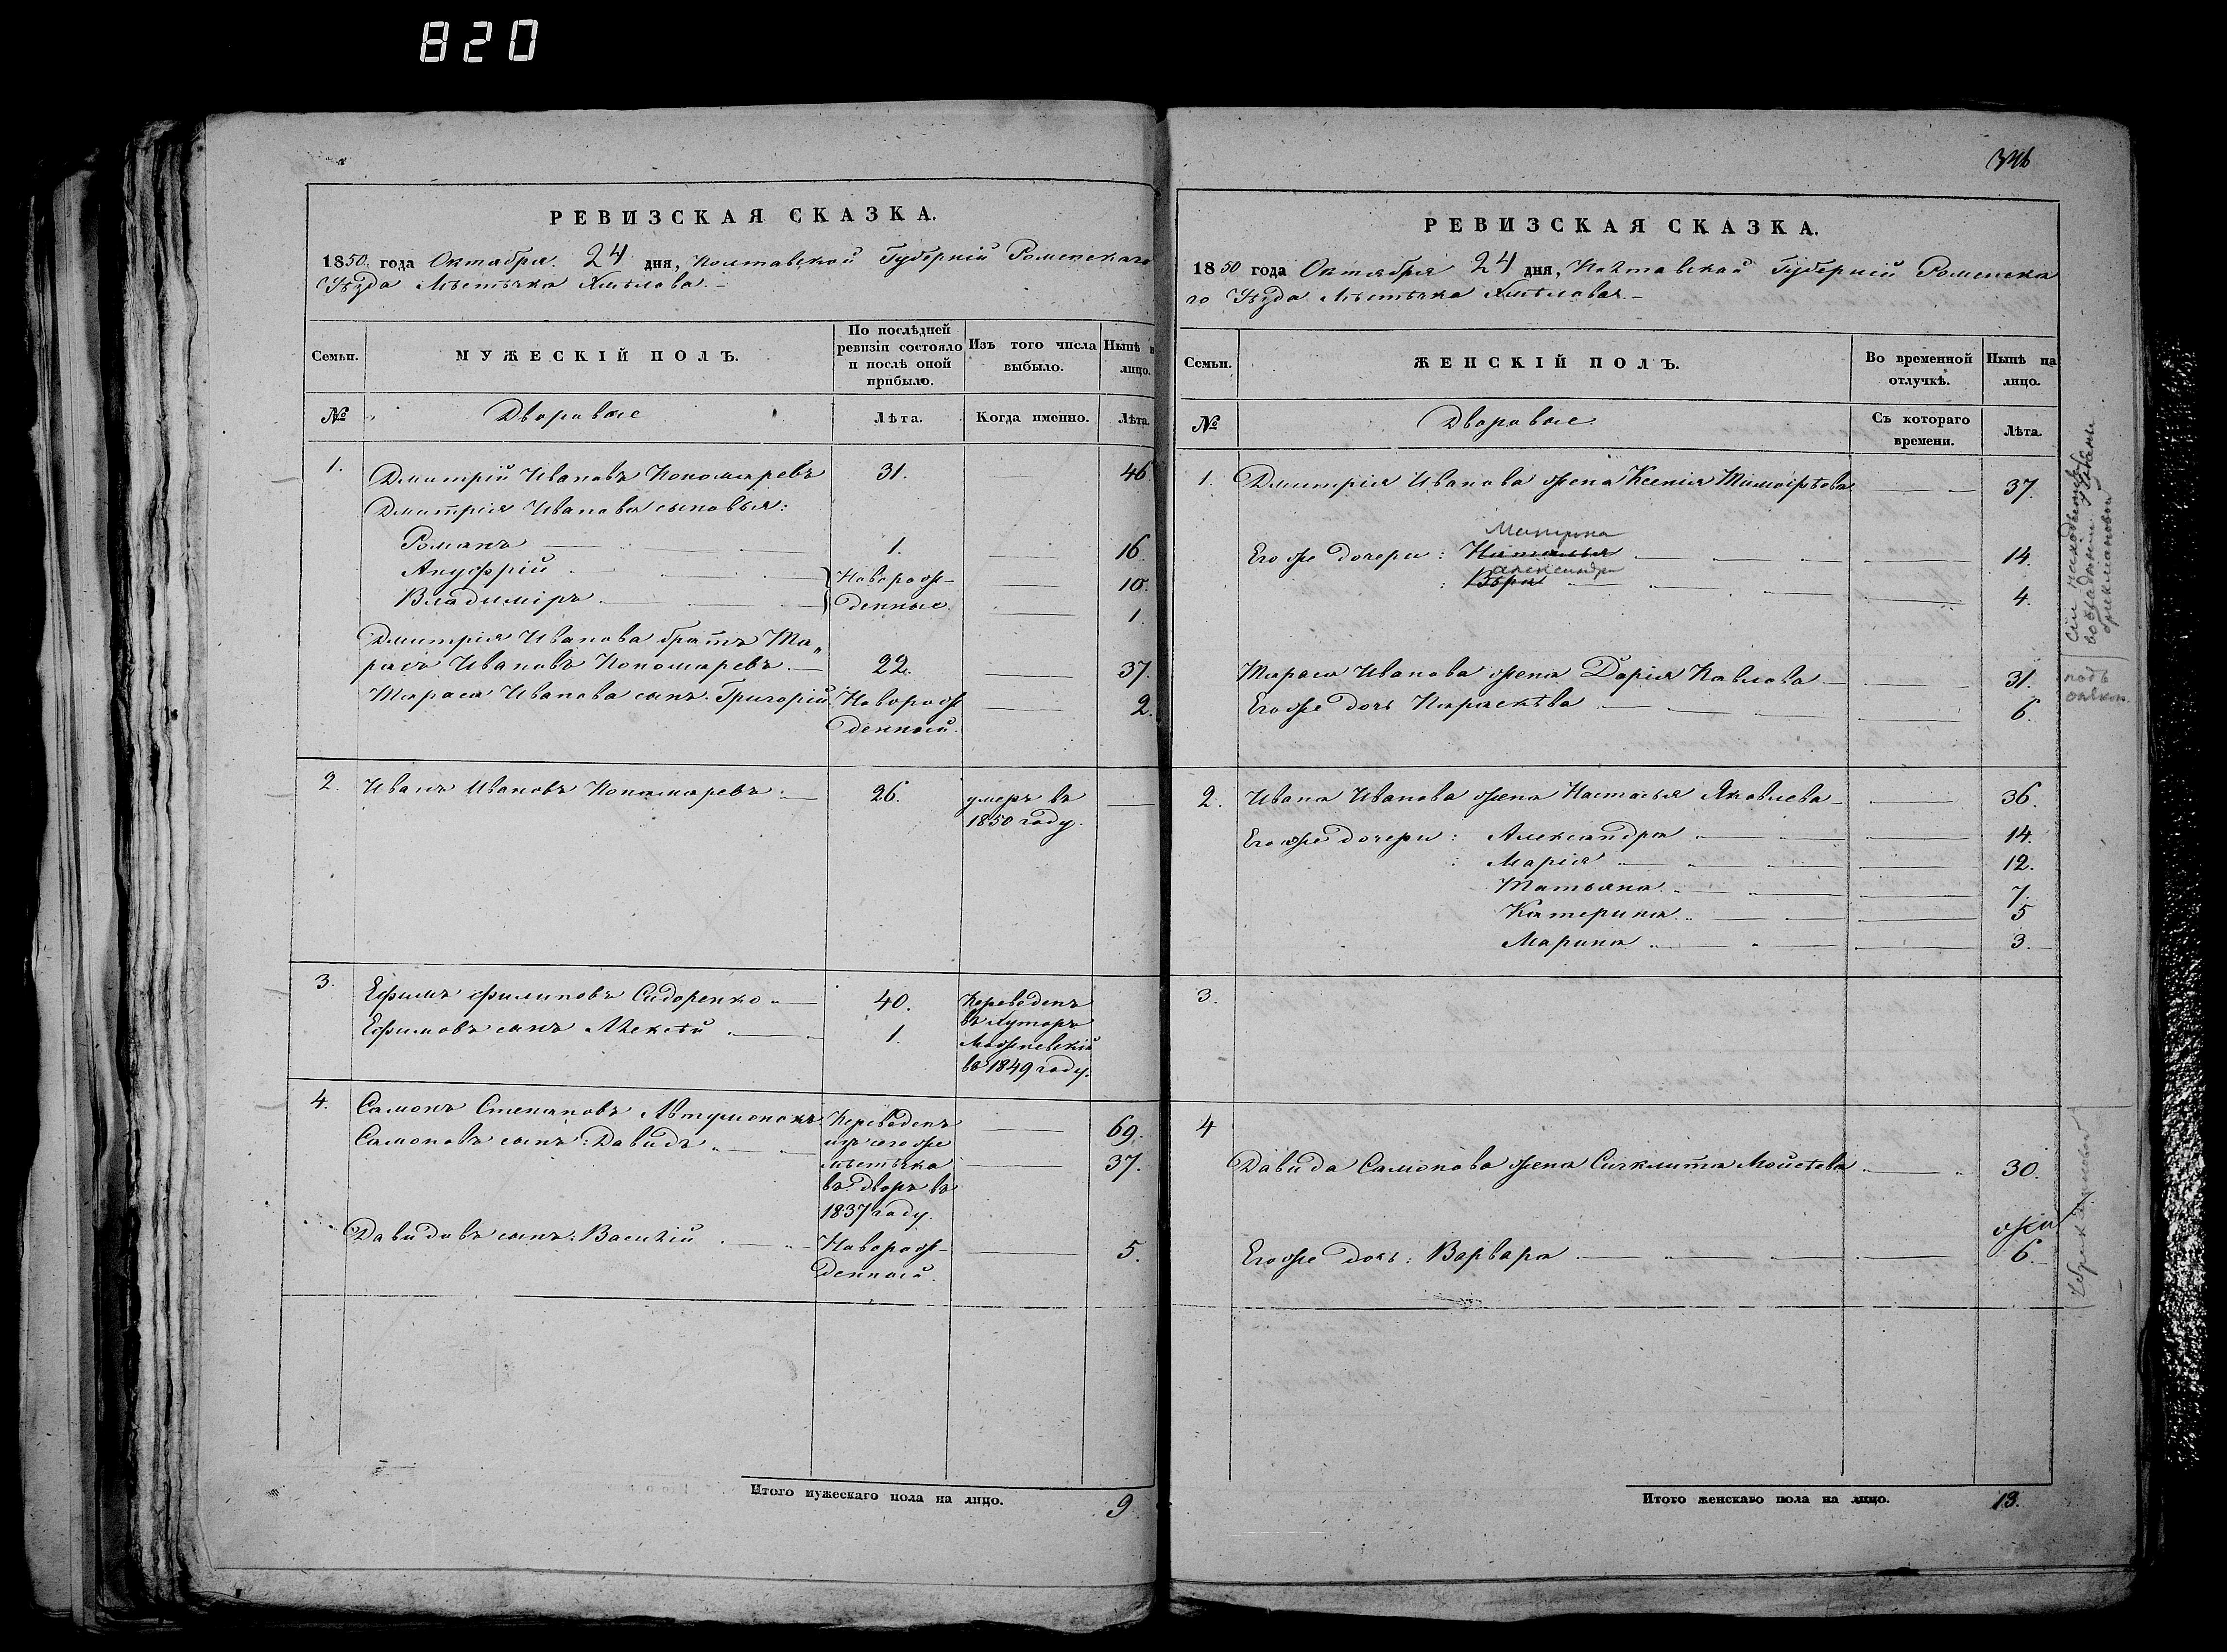 820
РЕВИЗСКАЯ СКАЗКА.
1850 года Октября 24 дня, Полтавской Губерніи Роменскаго
Уѣзда Мѣстѣчка Хмѣлова.
Семьи. МУЖЕСКІЙ ПОЛЪ. По послѣдней ревизіи состояло и послѣ оной прибыло. Изъ того числа выбыло. Нынѣ на лицо.
№ Дворовые Лѣта. Когда именно. Лѣта.
1. Дмитрій Ивановъ Пономаревъ 31. 46
Дмитрія Иванова сыновья:
Романъ 1. 16
Ануфрій Новорож- 10.
Владиміръ денные 1.
Дмитрія Иванова братъ Та„
расъ Ивановъ Пономаревъ 22. 37.
Тараса Иванова сынъ Григорій Новорож 2.
денный.
2. Иванъ Ивановъ Пономаревъ 26. умеръ въ
1850 году.
3. Ефимъ Филиповъ Сидоренко 40. Переведенъ
Ефимовъ сынъ Алексѣй 1. въ Хуторъ
въ 1849 году.
4. Самонъ Степановъ Переведенъ 69.
Самоновъ сынъ: Давидъ изъ сего же
мѣстѣчка 37.
въ дворъ въ
1837 году.
Давидовъ сынъ: Василій Новорож- 5.
денный.
Итого мужескаго пола на лицо. 9
РЕВИЗСКАЯ СКАЗКА.
1850 года Октября 24 дня, Полтавской Губерніи Роменска
го Уѣзда Мѣстѣчка Хмѣлова.
Семьи. ЖЕНСКІЙ ПОЛЪ. Во временной отлучкѣ. Нынѣ на лицо.
№ Дворовые Съ котораго времени. Лѣта.
1. Дмитрія Иванова жена Ксенія Тимофѣева 37.
Матрона
Его же дочери: Наталья 14.
александра
Вѣра 4.
Тараса Иванова жена Дарія Павлова 31.
Его же дочь Параскѣва 6.
2. Ивана Иванова жена Наталья Яковлева 36.
Его же дочери: Александра 14.
Марія 12.
Татьяна 7.
Катерина 5
Марина 3.
3.
4
Давида Самонова жена Синклита Моисѣева 30.
Его же дочь: Варвара 6
Итого женскаго пола на лицо. 13.